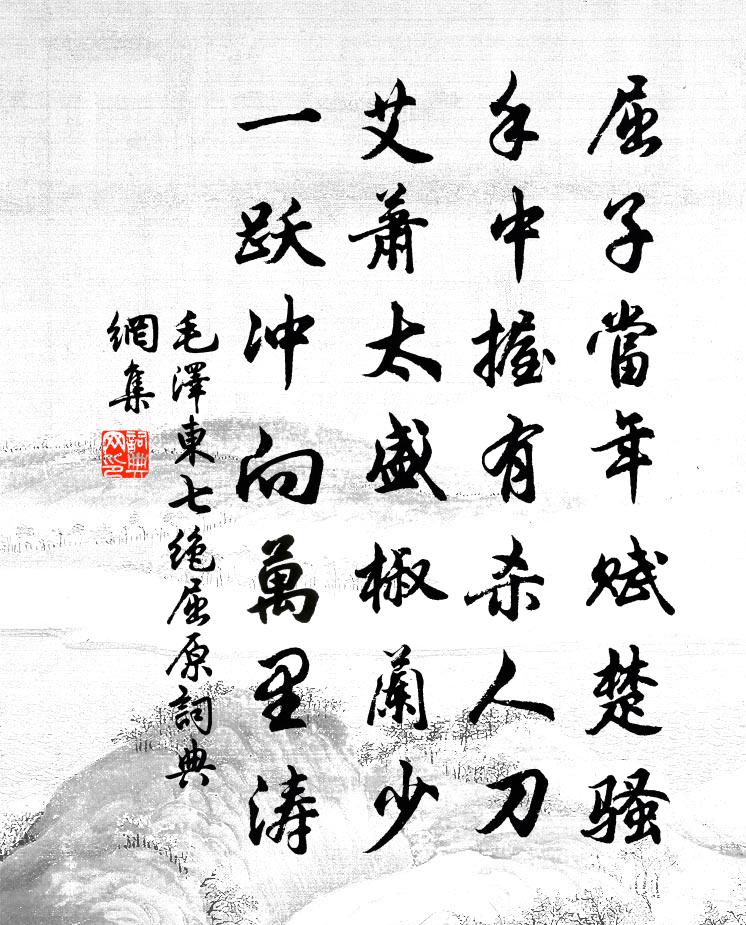 屈子當年赋楚骚
手中握有杀人刀
艾萧太盛椒蘭少
一跃冲向萬里涛
毛澤東七绝屈原詞典
網集
詞典
网印